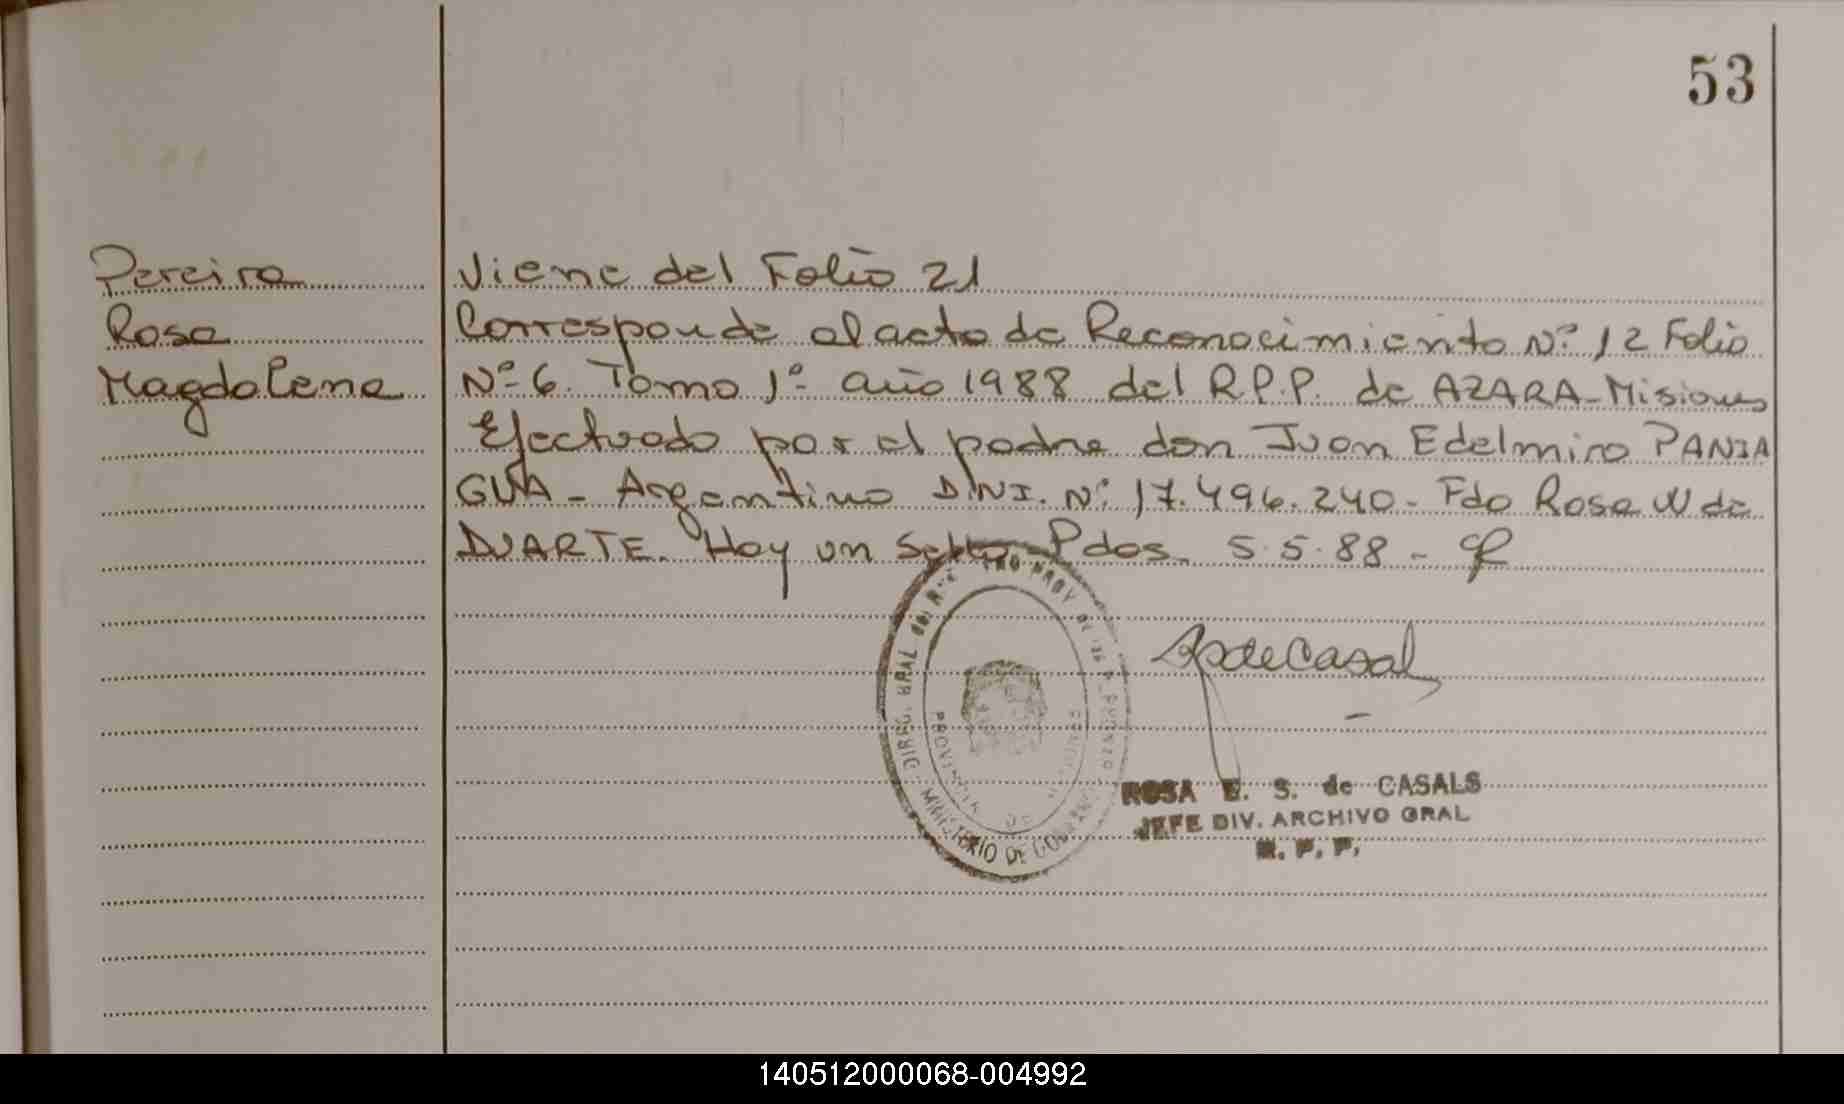 53
Pereira
Rosa
Magdalena
Viene del Folio 21
Corresponde al acta de Reconocimiento Nº 12 Folio
Nº 6. Tomo 1º año 1988 del R.P.P. de AZARA-Misiones
Efectuado por el padre don Juan Edelmiro PANIA
GUA - Argentino D.N.I. Nº 17.496.240 - Fdo Rosa W de
DUARTE. Hay un Sello. Pdos. 5.5.88 -
DIREC. GRAL del
PROV DE LAS PERSONAS
PROVINCIA DE MISIONES
MINISTERIO DE GOBIERNO
ROSA E. S. de CASALS
JEFE DIV. ARCHIVO GRAL
R. P. P.
140512000068-004992